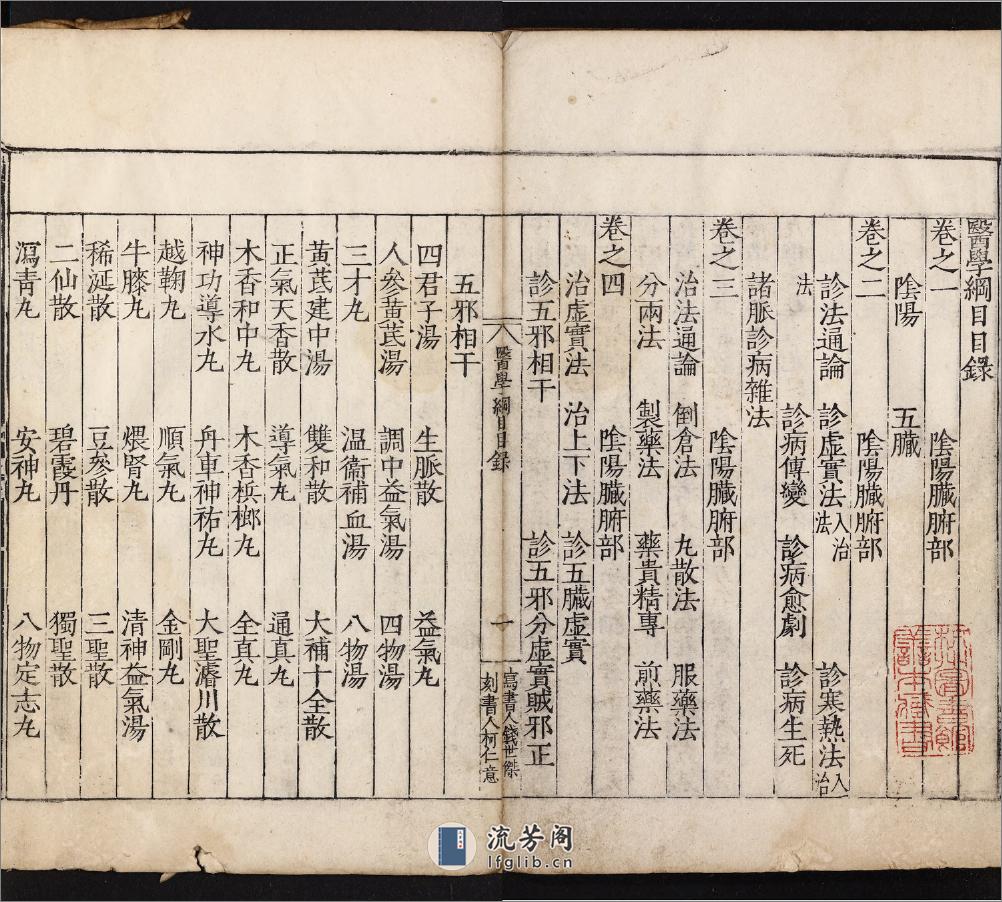 醫學綱目目錄
卷之一　陰陽臟腑部
陰陽　五臟
卷之二　陰陽臟腑部
診法通論　診虛實法入治法　診寒熱法入治
法　診病傳變　診病愈劇　診病生死
諸脈診病雜法
卷之三　陰陽臟腑部
治法通論　倒倉法　丸散法　服藥法
分兩法　製藥法　藥貴精專　煎藥法
卷之四　陰陽臟腑部
治虛實法　治上下法　診五臟虛實
診五邪相干　診五邪分虛實賊邪正
醫學綱目目錄　一　寫書人錢世傑　刻書人柯仁意
五邪相干
四君子湯　生脈散　益氣丸
人參黃芪湯　調中益氣湯　四物湯
三才丸　溫衞補血湯　八物湯
黃芪建中湯　雙和散　大補十全散
正氣天香散　導氣丸　通真丸
木香和中丸　木香檳榔丸　全真丸
神功導水丸　舟車神祐丸　大聖濬川散
越鞠丸　順氣丸　金剛丸
牛膝丸　煨腎丸　清神益氣湯
稀涎散　豆參散　三聖散
二仙散　碧霞丹　獨聖散
瀉青丸　安神丸　八物定志丸
流芳阁
lfglib.cn